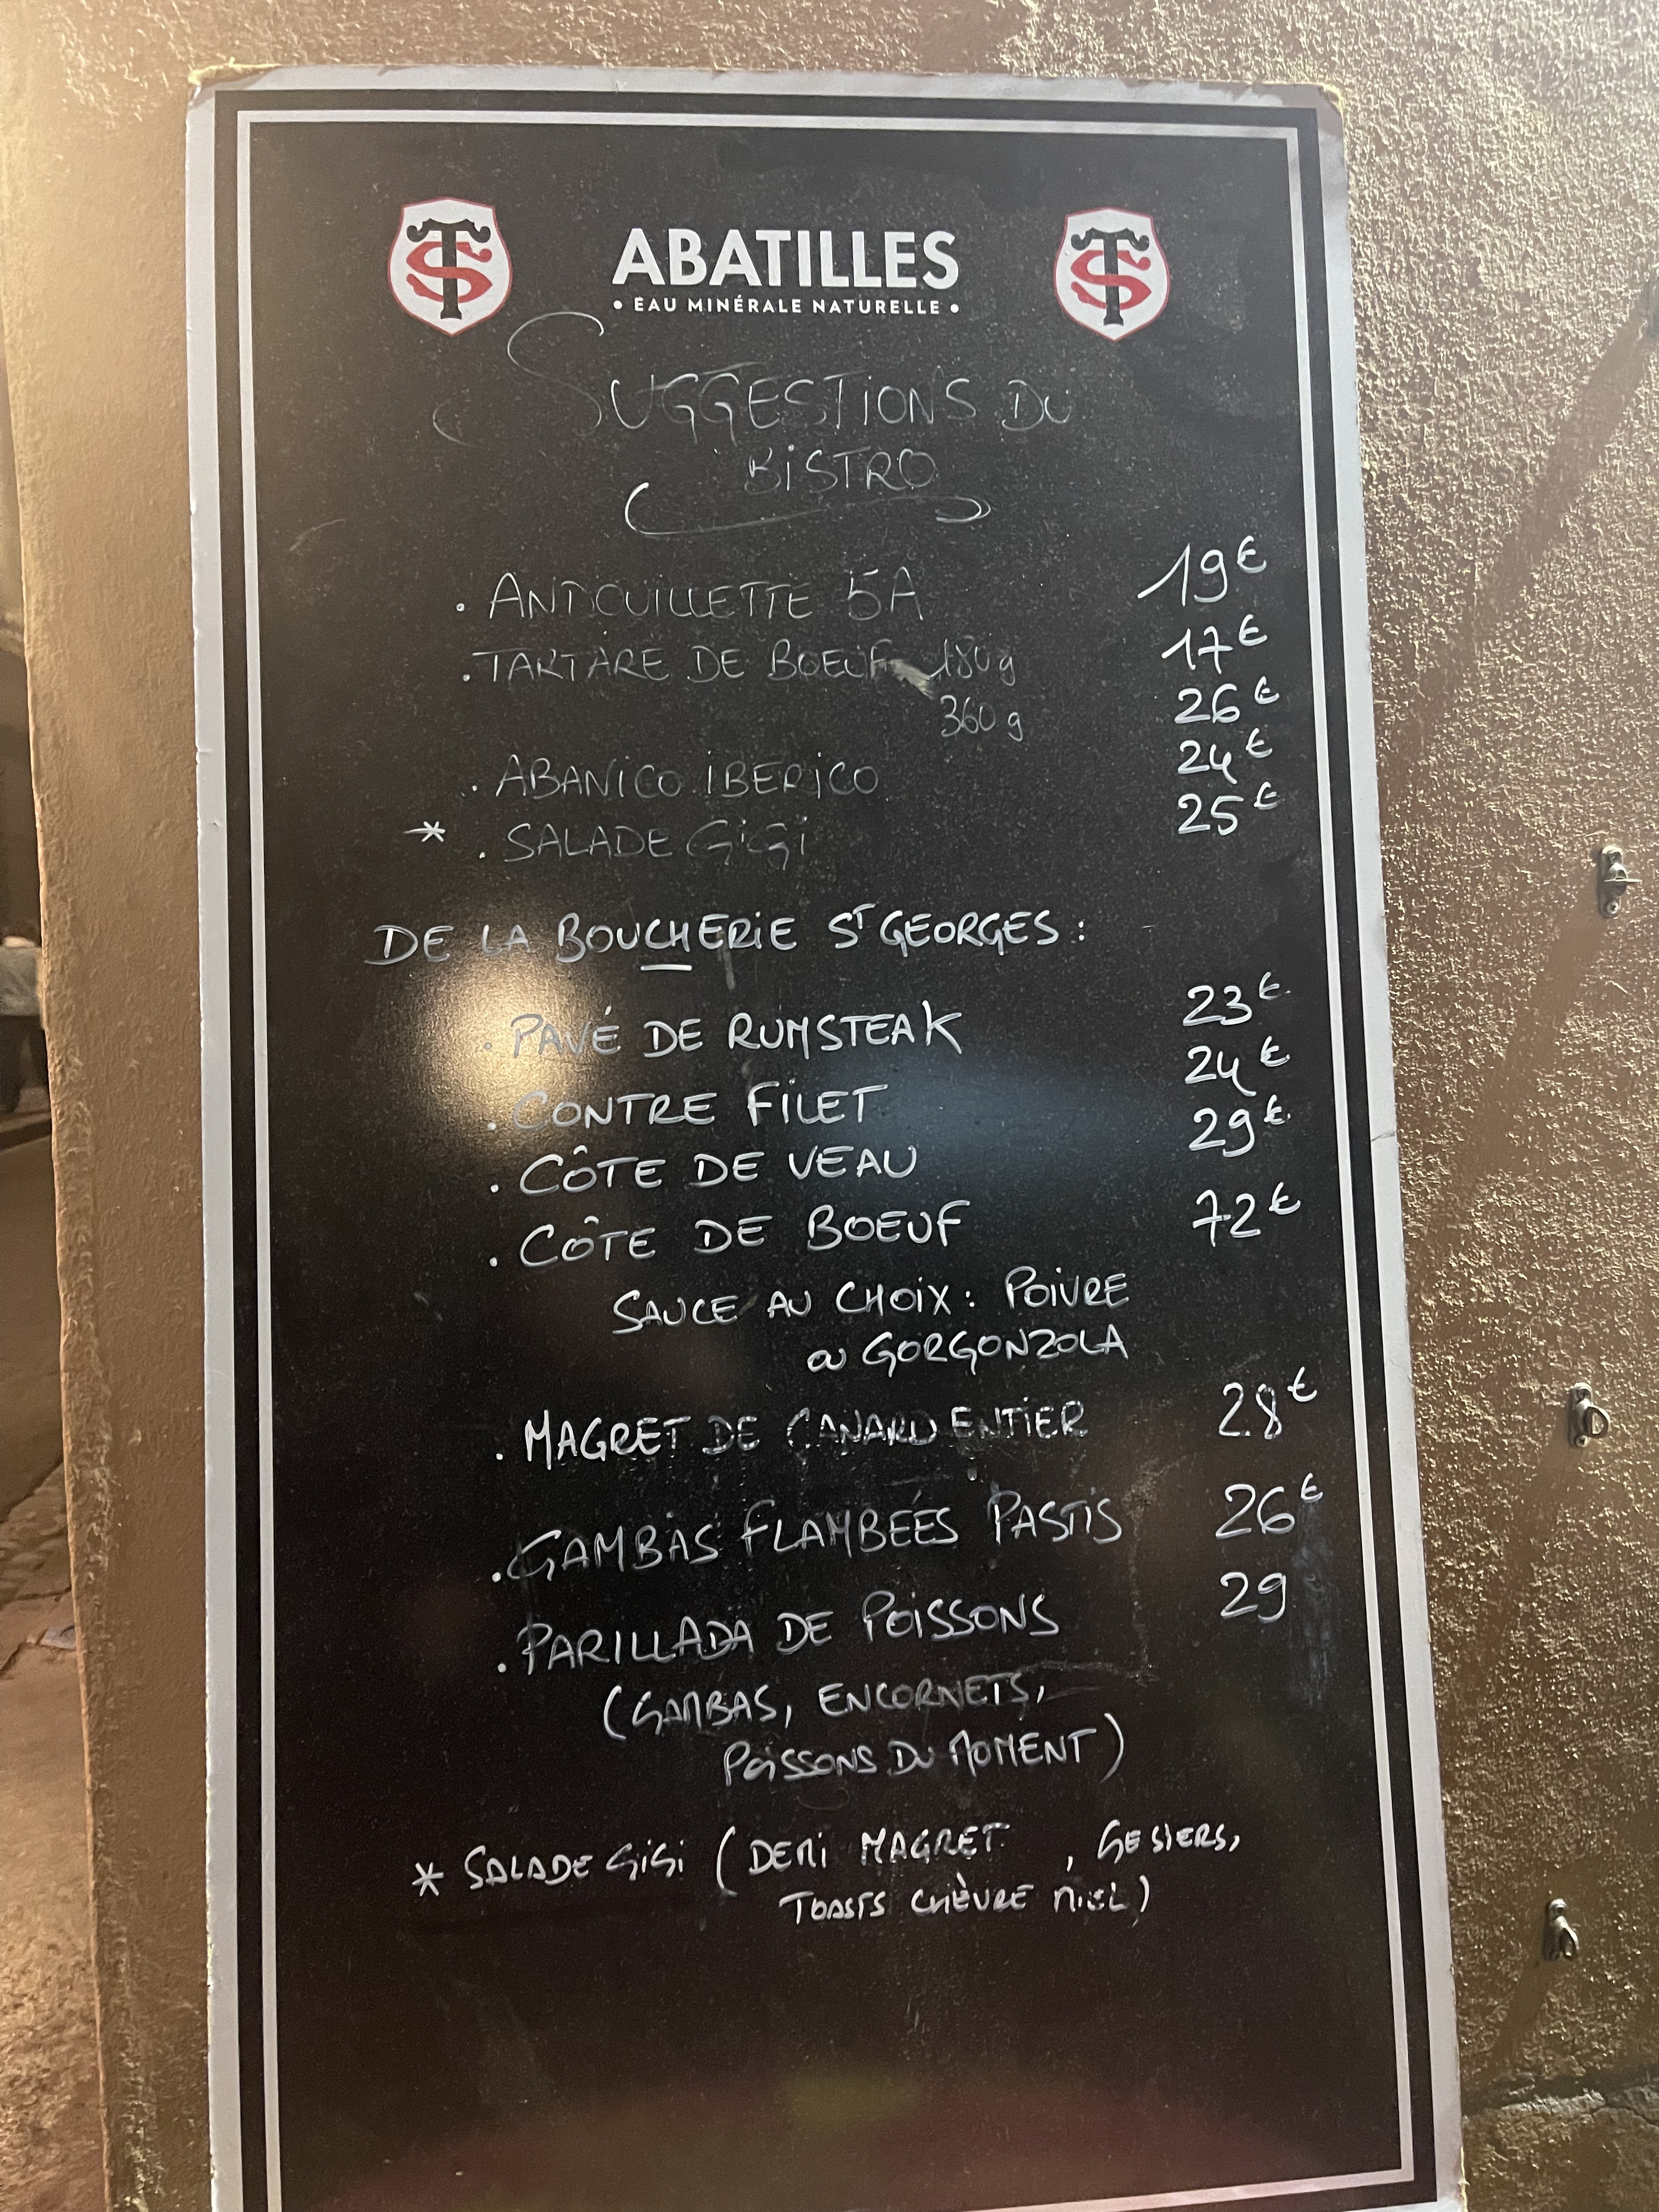 ABATILLES
• EAU MINÉRALE NATURELLE •
SUGGESTIONS DU
BISTRO
. ANDOUILLETTE 5A 19€
. TARTARE DE BOEUF 180g 17€
360g 26€
. ABANICO IBERICO 24€
* . SALADE GIGI 25€
DE LA BOUCHERIE ST GEORGES :
. PAVÉ DE RUMSTEAK 23€
. CONTRE FILET 24€
. CÔTE DE VEAU 29€
. CÔTE DE BOEUF 72€
SAUCE AU CHOIX : POIVRE
OU GORGONZOLA
. MAGRET DE CANARD ENTIER 28€
. GAMBAS FLAMBÉES PASTIS 26€
. PARILLADA DE POISSONS 29
(GAMBAS, ENCORNETS,
POISSONS DU MOMENT)
* SALADE GIGI (DEMI MAGRET , GESIERS,
TOASTS CHÈVRE MIEL)